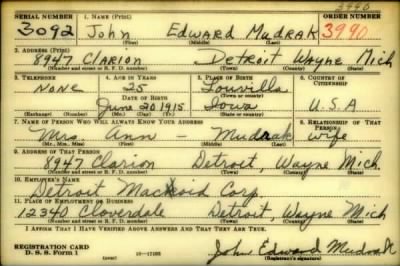 3990
SERIAL NUMBER 1. NAME (Print) ORDER NUMBER
3092 John Edward Mudrak 3990
(First) (Middle) (Last)
2. ADDRESS (Print)
8947 Clarion Detroit Wayne Mich
(Number and street or R. F. D. number) (Town) (County) (State)
3. TELEPHONE 4. AGE IN YEARS 5. PLACE OF BIRTH 6. COUNTRY OF CITIZENSHIP
None 25 Louvilla
DATE OF BIRTH (Town or county)
June 20 1915 Iowa U.S.A
(Exchange) (Number) (Mo.) (Day) (Yr.) (State or country)
7. NAME OF PERSON WHO WILL ALWAYS KNOW YOUR ADDRESS 8. RELATIONSHIP OF THAT PERSON
Mrs. Ann - Mudrak wife
(Mr., Mrs., Miss) (First) (Middle) (Last)
9. ADDRESS OF THAT PERSON
8947 Clarion Detroit, Wayne Mich.
(Number and street or R. F. D. number) (Town) (County) (State)
10. EMPLOYER'S NAME
Detroit Mackoid Corp.
11. PLACE OF EMPLOYMENT OR BUSINESS
12340 Cloverdale Detroit, Wayne Mich
(Number and street or R. F. D. number) (Town) (County) (State)
I AFFIRM THAT I HAVE VERIFIED ABOVE ANSWERS AND THAT THEY ARE TRUE.
REGISTRATION CARD
D. S. S. Form 1 (over) John Edward Mudrak
(Registrant's signature)